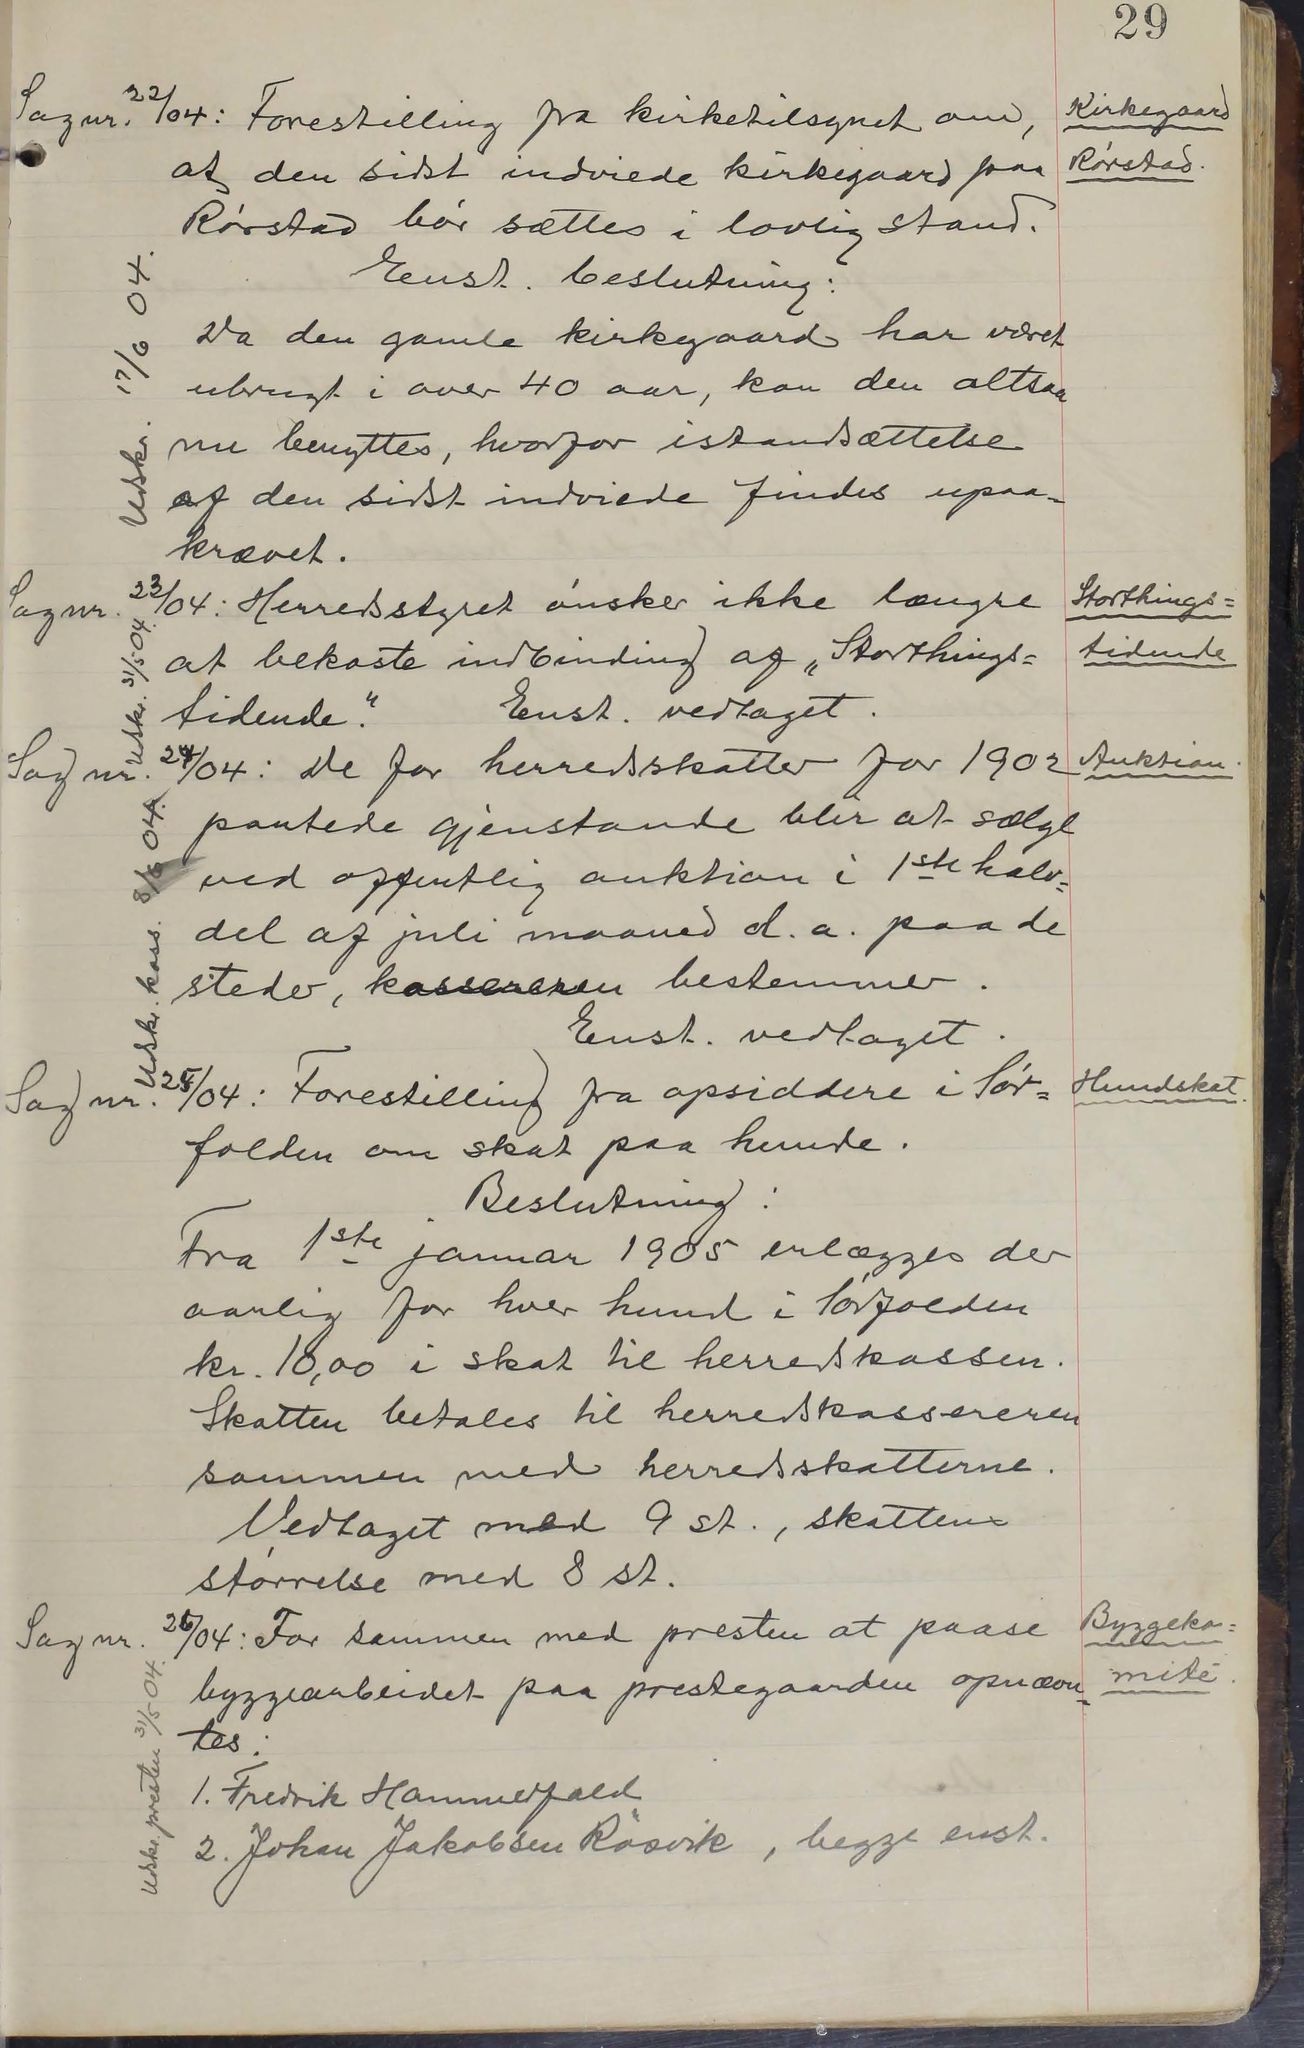 29
Sag nr. 22/04: Forestilling fra kirketilsynet om,
at den sidst indviede kirkegaard paa
Rørstad bør sættes i lovlig stand.
Enst. beslutning:
Da den gamle kirkegaard har været
ubrugt i over 40 aar, kan den altsaa
nu benyttes, hvorfor istandsættelse
af den sidst indviede findes upaa-
krævet.
Kirkegaard
Rørstad.
Udskr. 17/6 04.
Sag nr. 23/04: Herredsstyret ønsker ikke længre
at bekoste indbinding af „Storthings=
tidende". Enst. vedtaget.
Storthings=
tidende
Udskr. 31/5 04.
Sag nr. 24/04: De for herredsskatter for 1902
pantede gjenstande blir at sælge
ved offentlig auktion i 1ste halv=
del af juli maaned d. a. paa de
steder, kassereren bestemmer.
Enst. vedtaget.
Auktion.
Udskr. kass. 8/6 04.
Sag nr. 25/04: Forestilling fra opsiddere i Sør=
folden om skat paa hunde.
Beslutning:
Fra 1ste januar 1905 erlægges der
aarlig for hver hund i Sørfolden
kr. 10,00 i skat til herredskassen.
Skatten betales til herredskassereren
sammen med herredsskatterne.
Vedtaget med 9 st., skattens
størrelse med 8 st.
Hundskat.
Sag nr. 26/04: For sammen med presten at paase
byggearbeidet paa prestegaarden opnævn=
tes:
1. Fredrik Hammerfald
2. Johan Jakobsen Røsvik, begge enst.
Byggeko=
mité.
Udskr. presten 31/5 04.